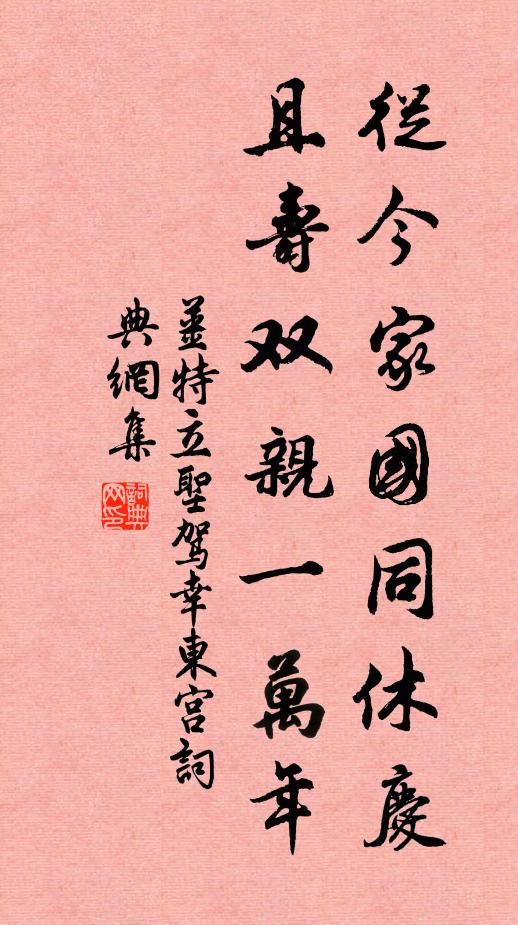 從今家國同休慶
且壽双親一萬年
薑特立聖駕幸東宫詞
典網集
詞典网印